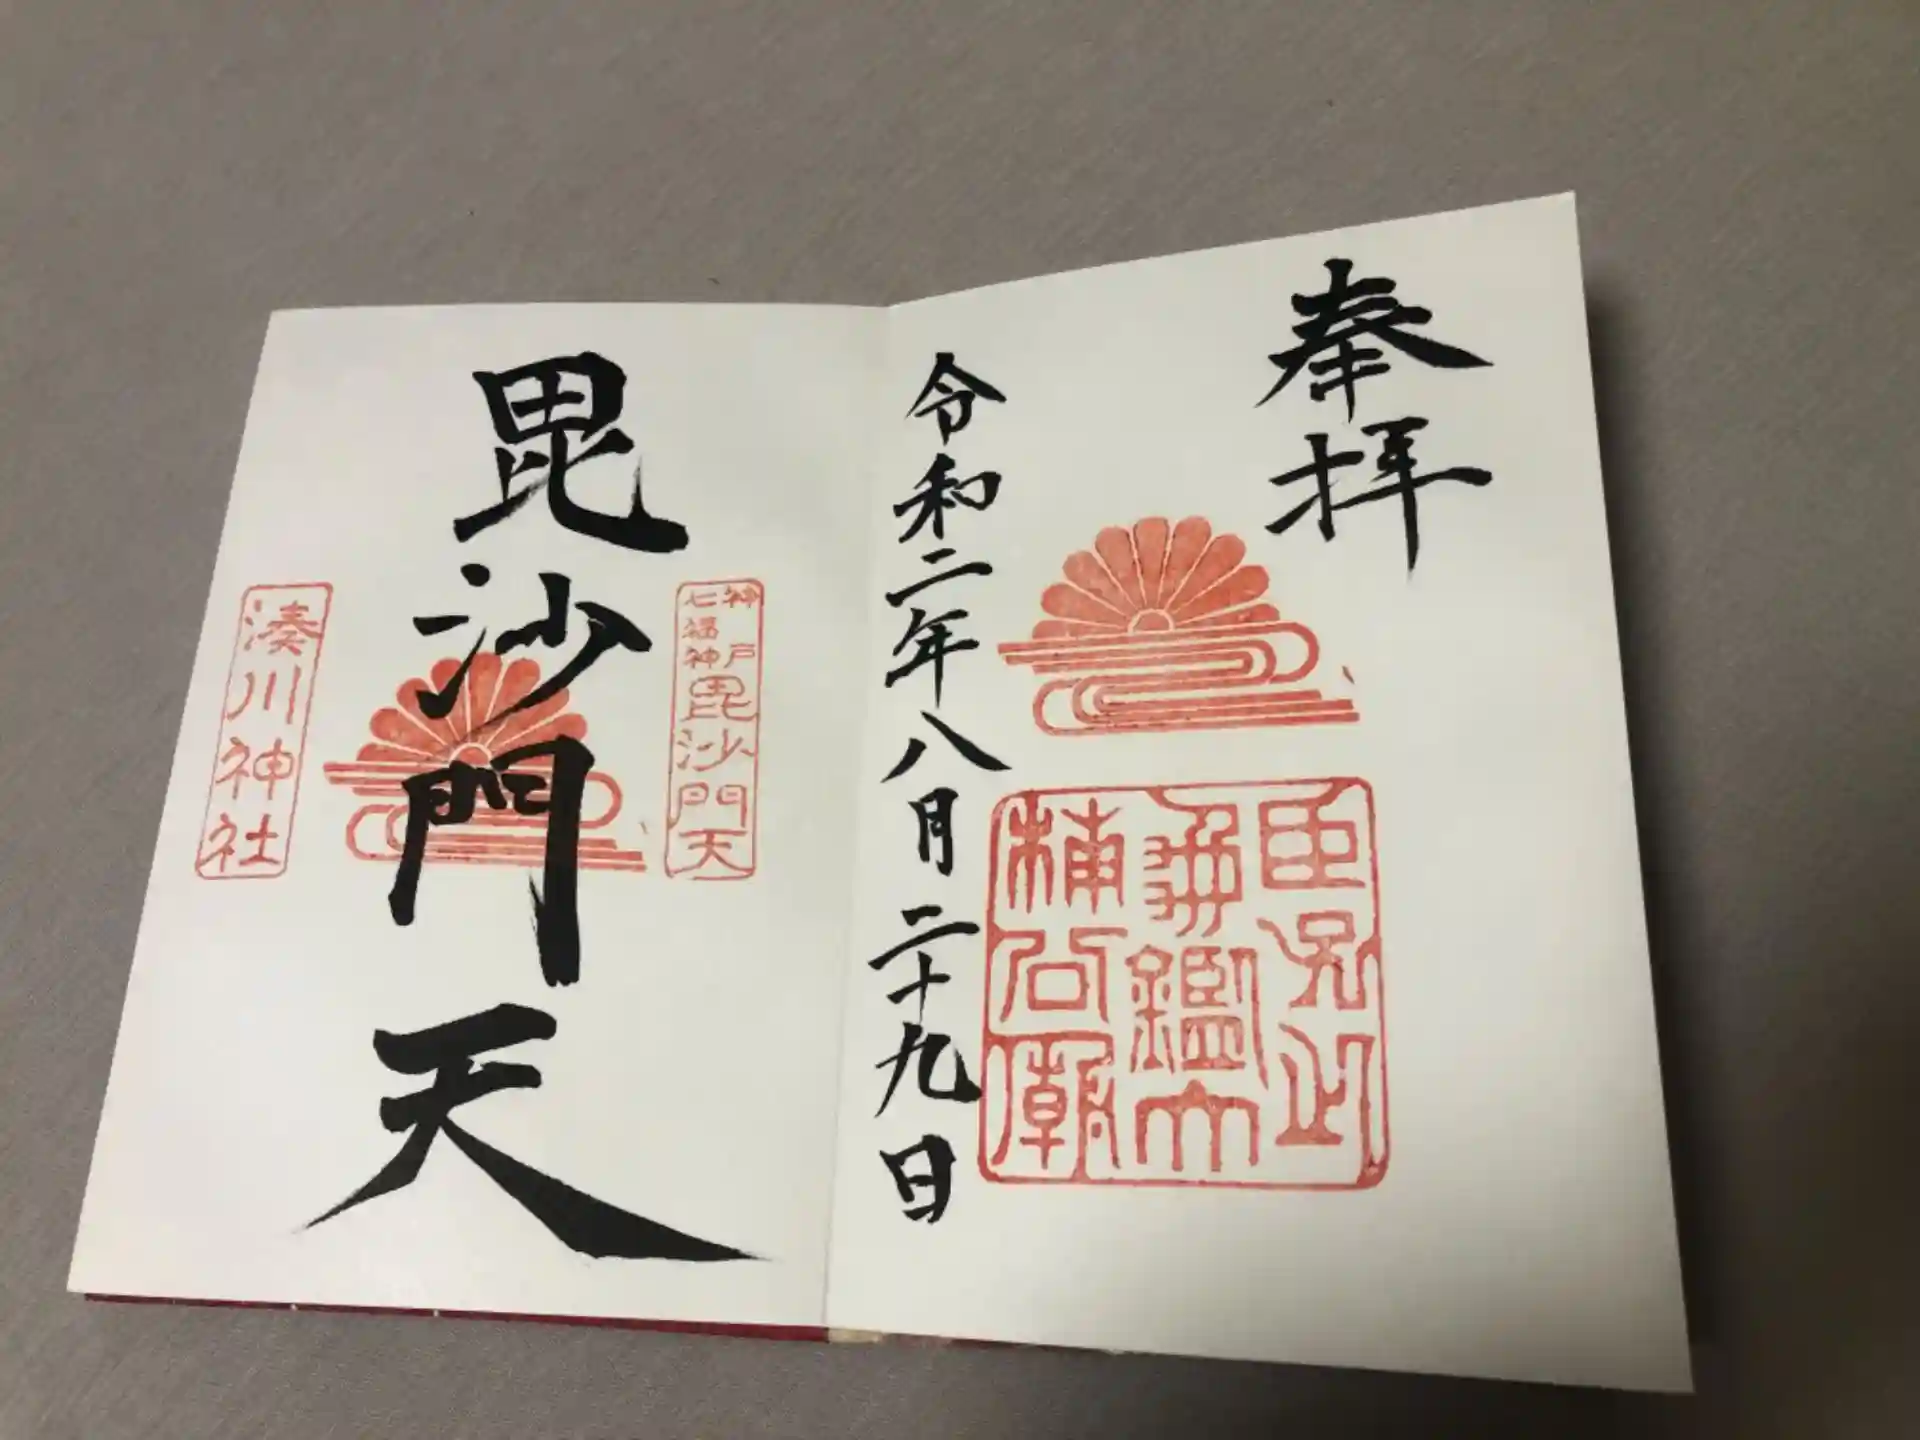 奉拝
令和二年八月二十九日
毘沙門天
神戸
七福神
毘沙門天
湊川神社